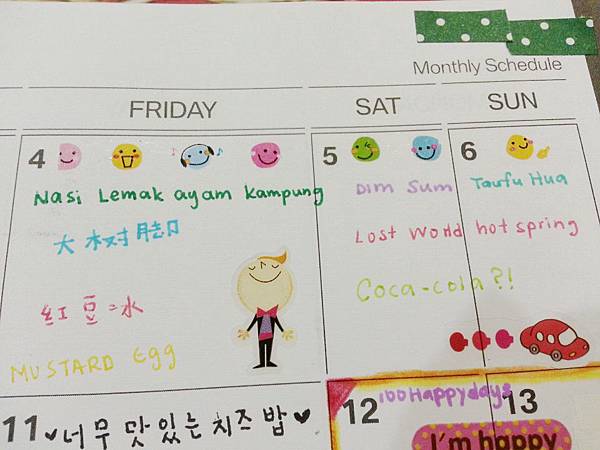 Monthly Schedule
FRIDAY SAT SUN
4 5 6
Nasi Lemak ayam kampung
大树脚
红豆=水
MUSTARD Egg
Dim Sum
Taufu Hua
Lost World hot spring
Coca-cola?!
11 ♥너무 맛있는 치즈밥♥
12 100Happydays 13
I'm happy